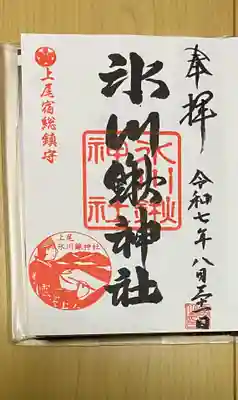 奉拝
令和七年八月三十一日
氷川鍬神社
氷川鍬神社
上尾宿総鎮守
上尾
氷川鍬神社